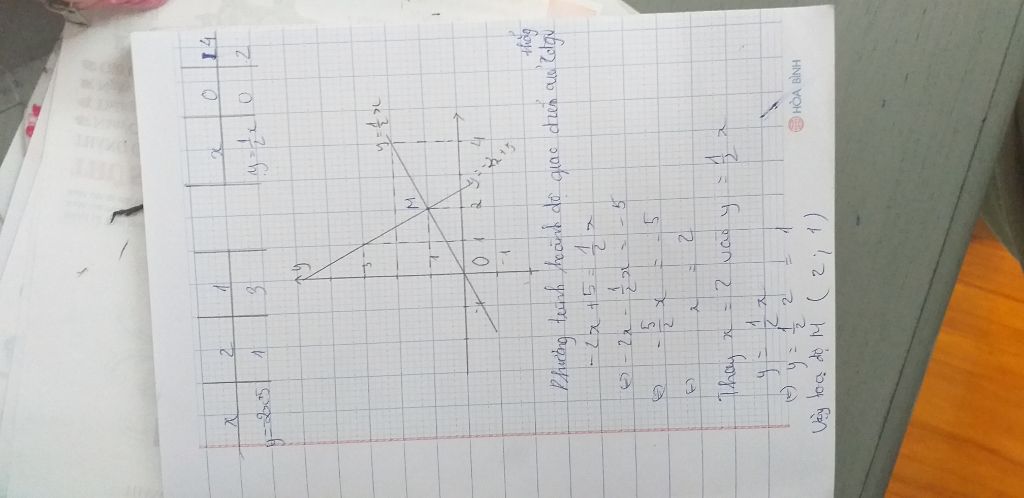 x 2 1
y=-2x+5 1 3
x 0 4
y=1/2x 0 2
y
3
M
y=1/2x
1
0 1 2 4
-1
Phương trình hoành độ giao điểm của 2 đgo thẳg
-2x + 5 = 1/2 x
(=) -2x - 1/2 x = -5
(=) -5/2 x = -5
(=) x = 2
Thay x = 2 vào y = 1/2 x
y = 1/2 x
(=) y = 1/2 2 = 1
Vậy toạ độ M ( 2 ; 1)
HÒA BÌNH